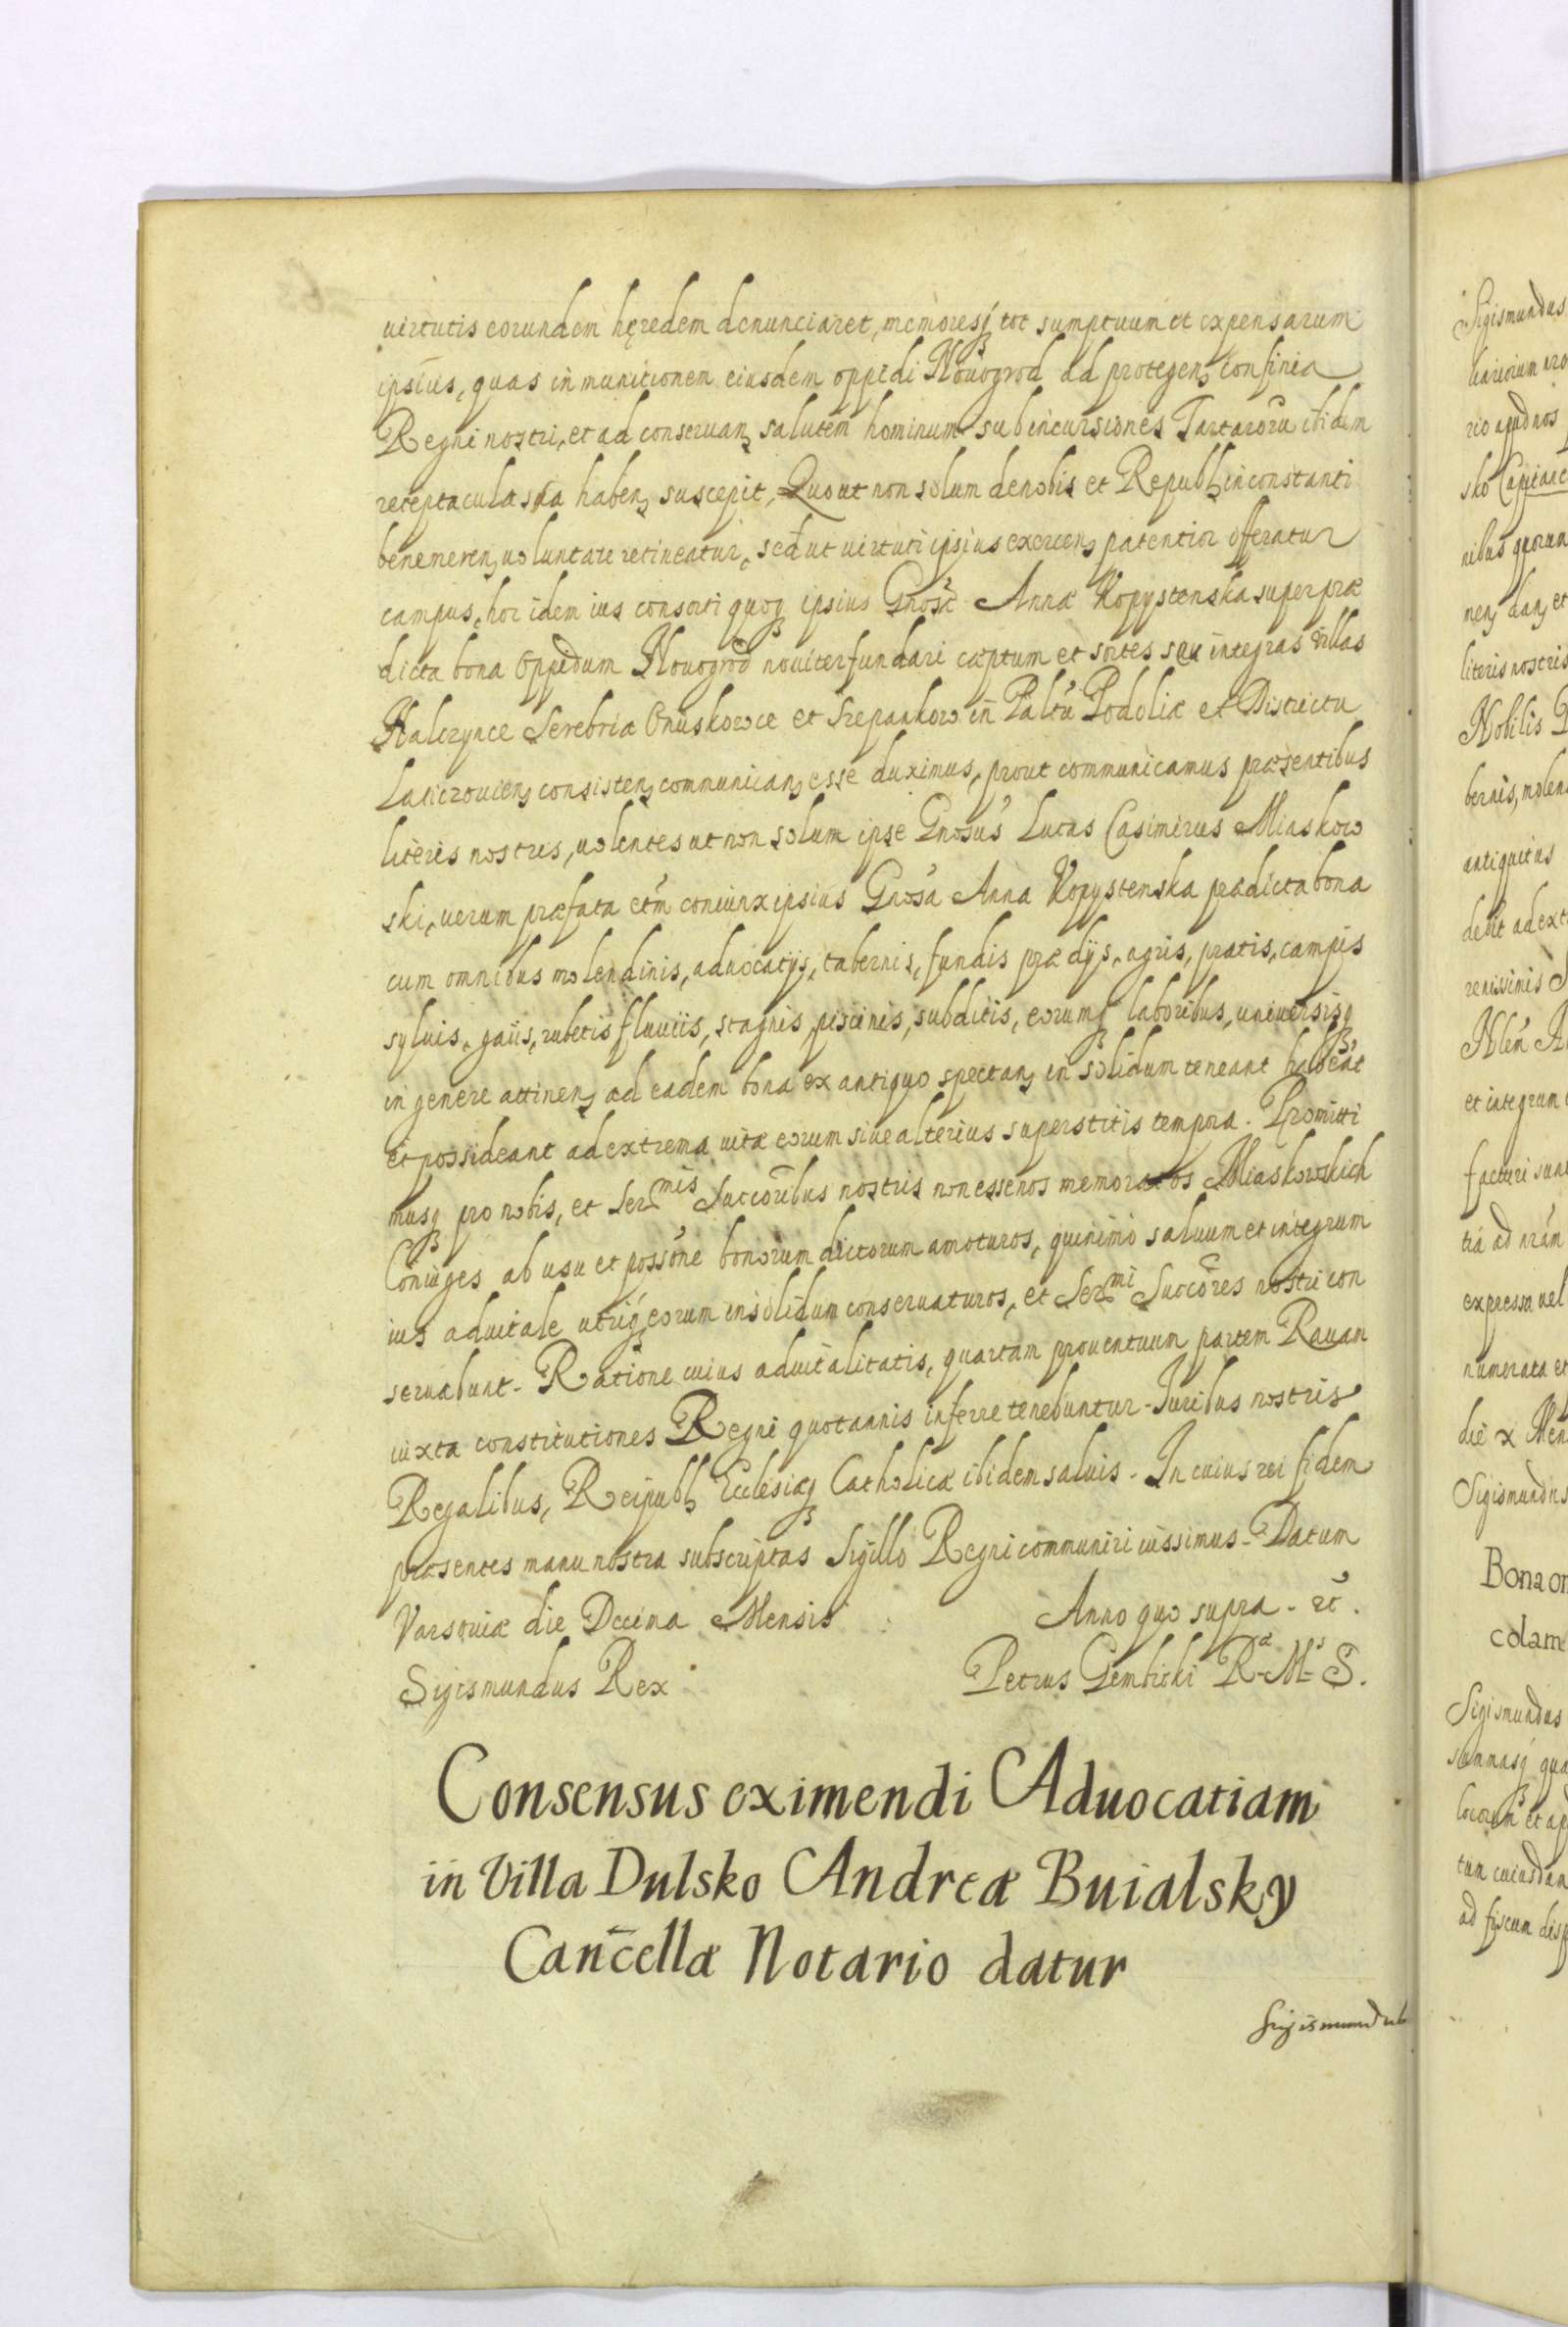 uirtutis eorundem hęredem denunciaret, memoresq̃ tot sumptuum et expensarum
ipsius, quas in munitionem eiusdem oppidi Nouogrod ad protegenꝫ confinia
Regni nostri, et ad conseruanꝫ salutem hominum sub incursiones Tartarorũ ibidem
receptacula sua habenꝫ suscepit, Quo ut non solum de nobis et Republꝫ in constanti
benemerenꝫ uoluntate retineatur, sed ut uirtuti ipsius exercenꝫ patentior offeratur
campus, hoc idem ius consorti quoqꝫ ipsius Gnosæ Annæ Kopystenska super præ
dicta bona Oppidum Nouogrod nouiter fundari cæptum et sortes seu integras villas
Halczynce Serebria Onuskowce et Szepankow in Pãltũ Podoliæ et Districtu
Laticzouienꝫ consistenꝫ communicanꝫ esse duximus, prout communicamus præsentibus
literis nostris, uolentes ut non solum ipse Gnosus Lucas Casimirus Miaskow
ski, uerum præfata etm̃ coniunx ipsius Gnosa Anna Kopystenska prædicta bona
cum omnibus molendinis, aduocatijs, tabernis, fundis prædijs, agris, pratis, campis
syluis, gaiis, rubetis fluuiis, stagnis, piscinis, subditis, eorumqꝫ laboribus, uniuersisqꝫ
in genere attinenꝫ ad eadem bona ex antiquo spectanꝫ in solidum teneant habeãt
et possideant ad extrema uitæ eorum siue alterius superstitis tempora. Promitti
musqꝫ pro nobis, et Serᵐⁱˢ Succõribus nostris non esse nos memoratos Miaskowskich
Coniuges ab usu et possõne bonorum dictorum amoturos, quinimo saluum et integrum
ius aduitale utriusqꝫ eorum in solidum conseruaturos, et Serᵐⁱ Succõres nostri con
seruabunt. Ratione cuius aduitalitatis, quartam prouentuum partem Rauam
iuxta constitutiones Regni quotannis inferre tenebuntur. Iuribus nostris
Regalibus, Reipublꝫ Ecclesiæqꝫ Catholicæ ibidem saluis. In cuius rei fidem
præsentes manu nostra subscriptas Sigillo Regni communiri iussimus. Datum
Varsouiæ die Decima Mensis Anno quo supra. etc̃.
Sigismundus Rex Petrus Gembicki R. M. S.
Consensus eximendi Aduocatiam
in Villa Dulsko Andreæ Buialsky
Cañcellæ Notario datur
Sigismundus